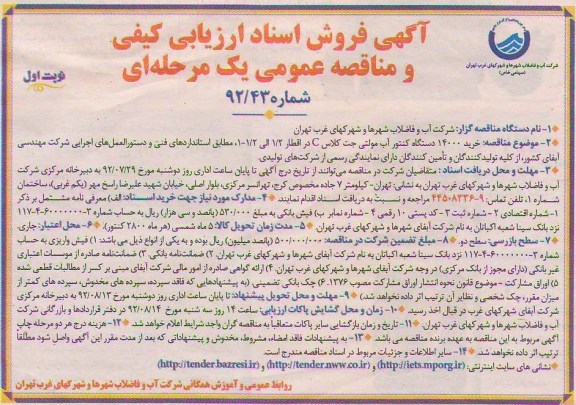 آگهی فروش اسناد ارزیابی کیفی
و مناقصه عمومی یک مرحله‌ای
شماره ۹۲/۴۳
نوبت اول
شرکت آب و فاضلاب شهرها و شهرکهای غرب تهران
(سهامی خاص)
۱- نام دستگاه مناقصه گزار: شرکت آب و فاضلاب شهرها و شهرکهای غرب تهران
۲- موضوع مناقصه: خرید ۱۴۰۰۰ دستگاه کنتور آب مولتی جت کلاس C در اقطار ۱/۲ الی ۱/۲-۱، مطابق استانداردهای فنی و دستورالعمل‌های اجرایی شرکت مهندسی
آبفای کشور، از کلیه تولیدکنندگان و تأمین کنندگان دارای نمایندگی رسمی از شرکت‌های تولیدی.
۳- مهلت و محل دریافت اسناد: متقاضیان شرکت در مناقصه می‌توانند از تاریخ درج آگهی تا پایان ساعت اداری روز دوشنبه مورخ ۹۲/۰۷/۲۹ به دبیرخانه مرکزی شرکت
آب و فاضلاب شهرها و شهرکهای غرب تهران به نشانی: تهران- کیلومتر ۷ جاده مخصوص کرج، تهرانسر مرکزی، بلوار اصلی، خیابان شهید علیرضا راسخ مهر (یکم غربی)، ساختمان
شماره ۱، تلفن تماس: ۹-۴۴۵۰۸۳۳۶ مراجعه و نسبت به دریافت اسناد اقدام نمایند. ۴- مدارک مورد نیاز جهت خرید اسناد: الف) معرفی نامه مشتمل بر ذکر
۱- شماره اقتصادی ۲- شماره ثبت ۳- کد پستی ۱۰ رقمی ۴- شماره نمابر ب) فیش بانکی به مبلغ ۵۰۰/۰۰۰ (پانصد و سی هزار) ریال به حساب شماره ۳-۶۰۰۰۰۰۰-۴-۱۱۷
نزد بانک سینا شعبه اکباتان به نام شرکت آبفای شهرها و شهرکهای غرب تهران. ۵- مدت زمان تحویل کالا: ۵ ماه شمسی (هر ماه ۲۸۰۰ کنتور). ۶- محل اعتبار: جاری.
۷- سطح بازرسی: سطح دو. ۸- مبلغ تضمین شرکت در مناقصه: ۵۰۰/۰۰۰/۰۰۰ (پانصد میلیون) ریال بوده و به یکی از انواع ذیل می‌باشد: ۱) فیش واریزی به حساب
شماره ۳-۶۰۰۰۰۰۰-۴-۱۱۷ نزد بانک سینا شعبه اکباتان به نام شرکت آبفای شهرها و شهرکهای غرب تهران. ۲) ضمانتنامه بانکی. ۳) ضمانت‌نامه صادره از موسسات اعتباری
غیر بانکی (دارای مجوز از بانک مرکزی) در وجه شرکت آبفای شهرها و شهرکهای غرب تهران ۴) ارائه گواهی صادره از امور مالی شرکت آبفای مبنی بر کسر از مطالبات قطعی شده
۵) اوراق مشارکت- موضوع قانون نحوه انتشار اوراق مشارکت مصوب ۱۳۷۶. ۶) چک بانکی تضمینی (به پیشنهادهایی که فاقد سپرده، سپرده های مخدوش، سپرده های کمتر از
میزان مقرر، چک شخصی و نظایر آن ترتیب اثر داده نخواهد شد.) ۹- مهلت و محل تحویل پیشنهاد: تا پایان ساعت اداری روز دوشنبه مورخ ۹۲/۰۸/۱۳ به دبیرخانه مرکزی
شرکت آبفای شهرهای غرب در قبال اخذ رسید. ۱۰- زمان و محل گشایش پاکات ارزیابی: ساعت ۱۴ روز سه شنبه مورخ ۹۲/۰۸/۱۴ در دفتر قراردادها و بازرگانی شرکت
آب و فاضلاب شهرها و شهرکهای غرب تهران. ۱۱- تاریخ و زمان بازگشایی سایر پاکات متعاقباً به مناقصه گران واجد شرایط اعلام خواهد شد. ۱۲- هزینه درج هر دو مرحله چاپ
آگهی مربوط به این مناقصه به عهده برنده مناقصه می باشد. ۱۳- به پیشنهادات فاقد امضاء، مشروط، مخدوش و پیشنهاداتی که بعد از مدت مقرر در این آگهی واصل شود مطلقاً
ترتیب اثر داده نخواهد شد. ۱۴- سایر اطلاعات و جزئیات مربوط در اسناد مناقصه مندرج است.
نشانی های سایت اینترنتی: (http://iets.mporg.ir) و (http://tender.nww.co.ir) و (http://tender.bazresi.ir)
روابط عمومی و آموزش همگانی شرکت آب و فاضلاب شهرها و شهرکهای غرب تهران